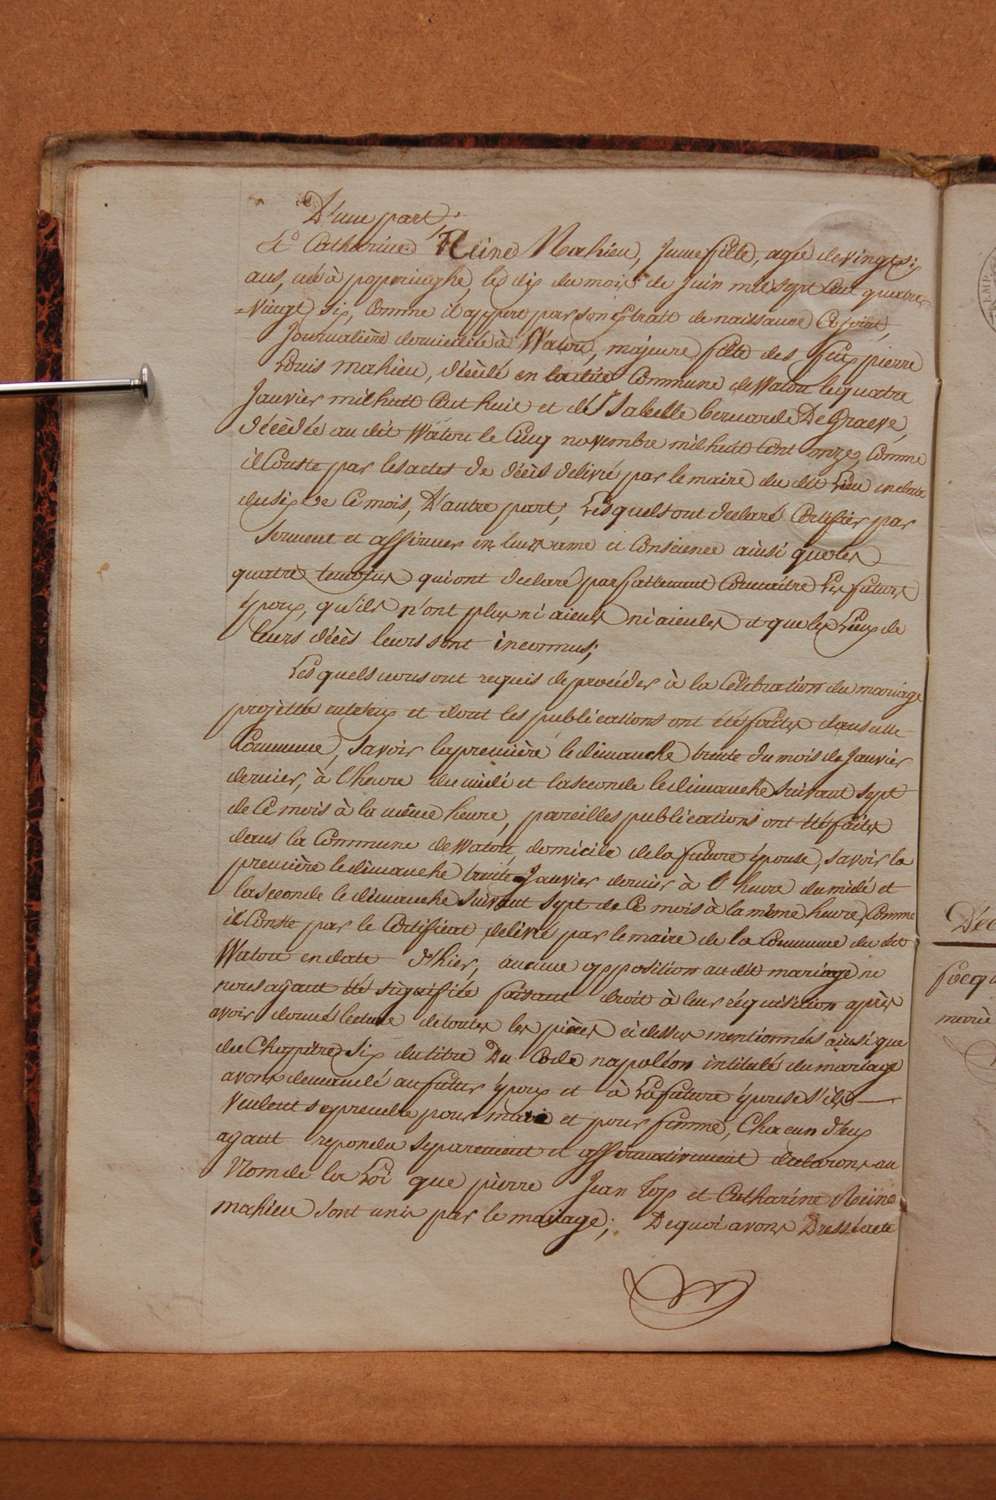 D'une part,
Et Catharine Reine Mahieu, Jeune fille, agée de vingt six
ans, née à poperinghe, le dix du mois de Juin mil sept cent quatre
=vingt six, comme il appert par son extrait de naissance cijoint,
Journalière domiciliée à Watou, majeure fille des feux pierre
Louis mahieu, décédé en la dite Commune de Watou le quatre
Janvier mil huit cent huit et de Isabelle bernarde De Graeve,
décédée au dit Watou le Cinq novembre mil huit cent onze, comme
il Conste par les actes de décès délivré par le maire du dit Lieu en date
du six de ce mois, D'autre part; Lesquels ont declaré Certifier par
Serment et affirmer en leur ame et Conscience ainsi que les
quatre temoins qui ont declaré parfaitement Connaitre les futurs
époux, qu'ils n'ont plus ni aieux ni aieules et que les Lieux de
leurs décès leurs sont inconnus;
Lesquels nous ont requis de procéder à la Célébration du mariage
projetté entr'eux et dont les publications ont été faites dans cette
Commune, Savoir la première le dimanche trente du mois de Janvier
dernier, à l'heure du midi et la seconde le dimanche suivant sept
de ce mois à la même heure, pareilles publications ont été faites
dans la Commune de Watou domicile de la future épouse, savoir la
première le dimanche trente Janvier dernier à l'heure du midi et
la seconde le dimanche suivant sept de ce mois à la même heure, Comme
il Conste par le Certificat délivré par le maire de la Commune du dit
Watou en date d'hier, aucune opposition au dit mariage ne
nous ayant été signifiée faisant droit à leur réquisition après
avoir donné lecture de toutes les pièces ci dessus mentionnées ainsi que
du Chapitre six du titre Du Code napoléon intitulé du mariage
avons demandé au futur époux et à La future épouse s'ils
veulent se prendre pour mari et pour femme, Chacun d'eux
ayant repondu separement et affirmativement declarons au
Nom de la Loi que pierre Jean Top et Catharine Reine
mahieu sont unis par le mariage; De quoi avons Dressé acte
Déc
mariè